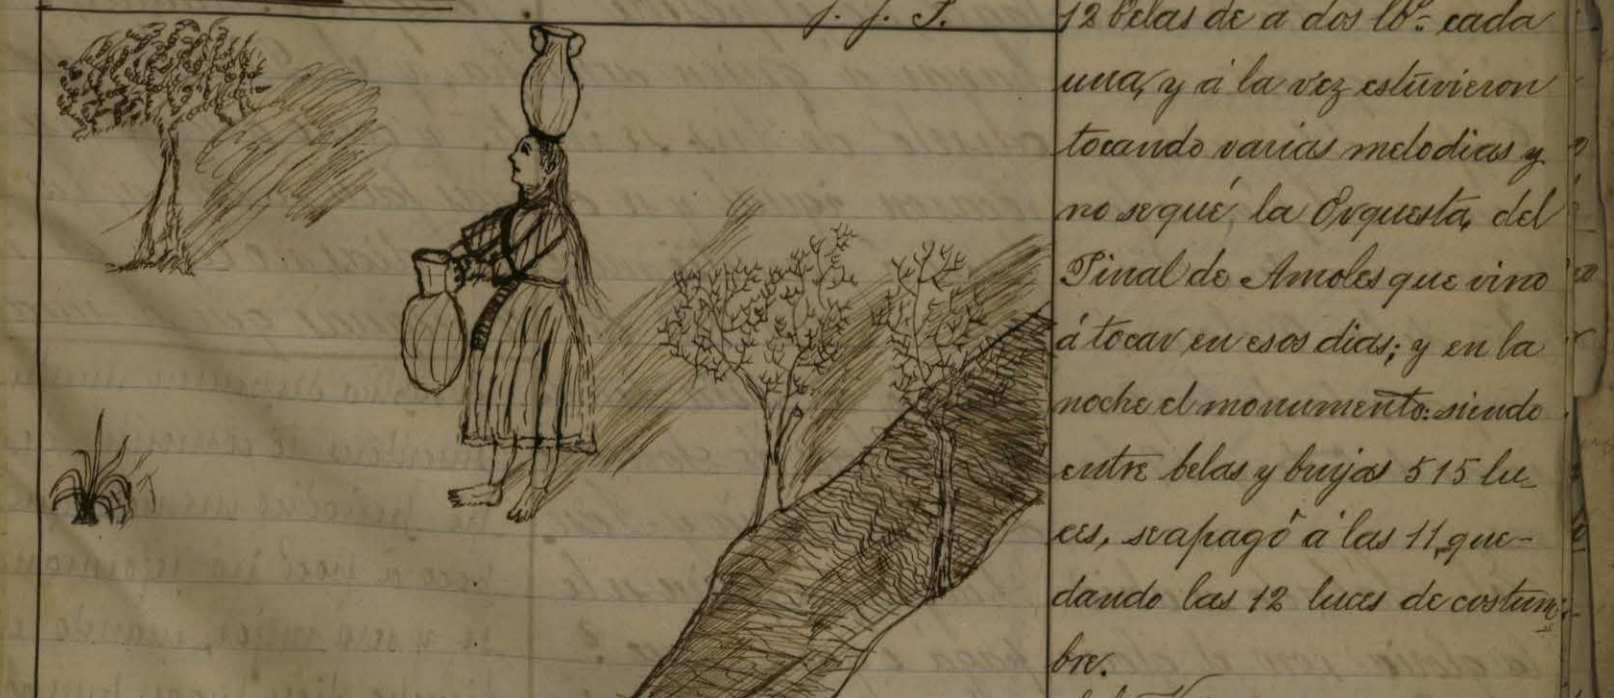 J. J. S.
12 belas de a dos lbs. cada
una, y á la vez estuvieron
tocando varias melodias y
no se qué, la Orquesta, del
Pinal de Amoles que vino
á tocar en esos dias; y en la
noche el monumento: siendo
entre belas y bujas 515 lu-
ces, se apagó á las 11, que-
dando las 12 luces de costum-
bre.